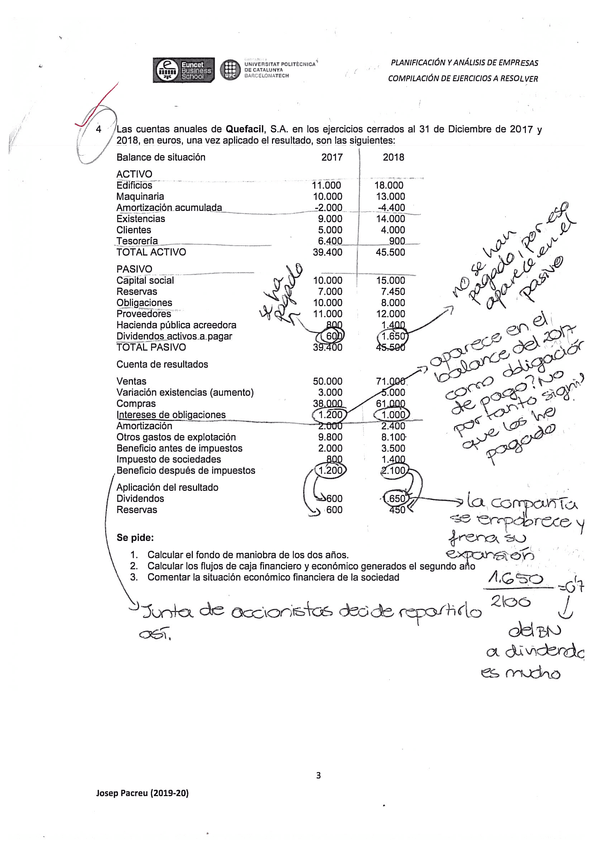 Euncet
Business
School
UPC
UNIVERSITAT POLITÈCNICA
DE CATALUNYA
BARCELONATECH
PLANIFICACIÓN Y ANÁLISIS DE EMPRESAS
COMPILACIÓN DE EJERCICIOS A RESOLVER
4 Las cuentas anuales de Quefacil, S.A. en los ejercicios cerrados al 31 de Diciembre de 2017 y
2018, en euros, una vez aplicado el resultado, son las siguientes:
Balance de situación 2017 2018
ACTIVO
Edificios 11.000 18.000
Maquinaria 10.000 13.000
Amortización acumulada -2.000 -4.400
Existencias 9.000 14.000
Clientes 5.000 4.000
Tesorería 6.400 900
TOTAL ACTIVO 39.400 45.500
PASIVO
Capital social 10.000 15.000
Reservas 7.000 7.450
Obligaciones 10.000 8.000
Proveedores 11.000 12.000
Hacienda pública acreedora 800 1.400
Dividendos activos a pagar 600 1.650
TOTAL PASIVO 39.400 45.500
se ha
pagado
no se han
pagado, por eso
aparece en el
pasivo
Cuenta de resultados
Ventas 50.000 71.000
Variación existencias (aumento) 3.000 5.000
Compras 38.000 61.000
Intereses de obligaciones 1.200 1.000
Amortización 2.000 2.400
Otros gastos de explotación 9.800 8.100
Beneficio antes de impuestos 2.000 3.500
Impuesto de sociedades 800 1.400
Beneficio después de impuestos 1.200 2.100
aparece en el
balance del 2017
como obligación
de pago? No
por tanto signi
que los he
pagado
Aplicación del resultado
Dividendos 600 1.650
Reservas 600 450
la compañía
se empobrece y
frena su
expansión
Se pide:
1. Calcular el fondo de maniobra de los dos años.
2. Calcular los flujos de caja financiero y económico generados el segundo año
3. Comentar la situación económico financiera de la sociedad
1.650
2100
=0'7
del BN
a dividendo
es mucho
Junta de accionistas decide repartirlo
así.
3
Josep Pacreu (2019-20)